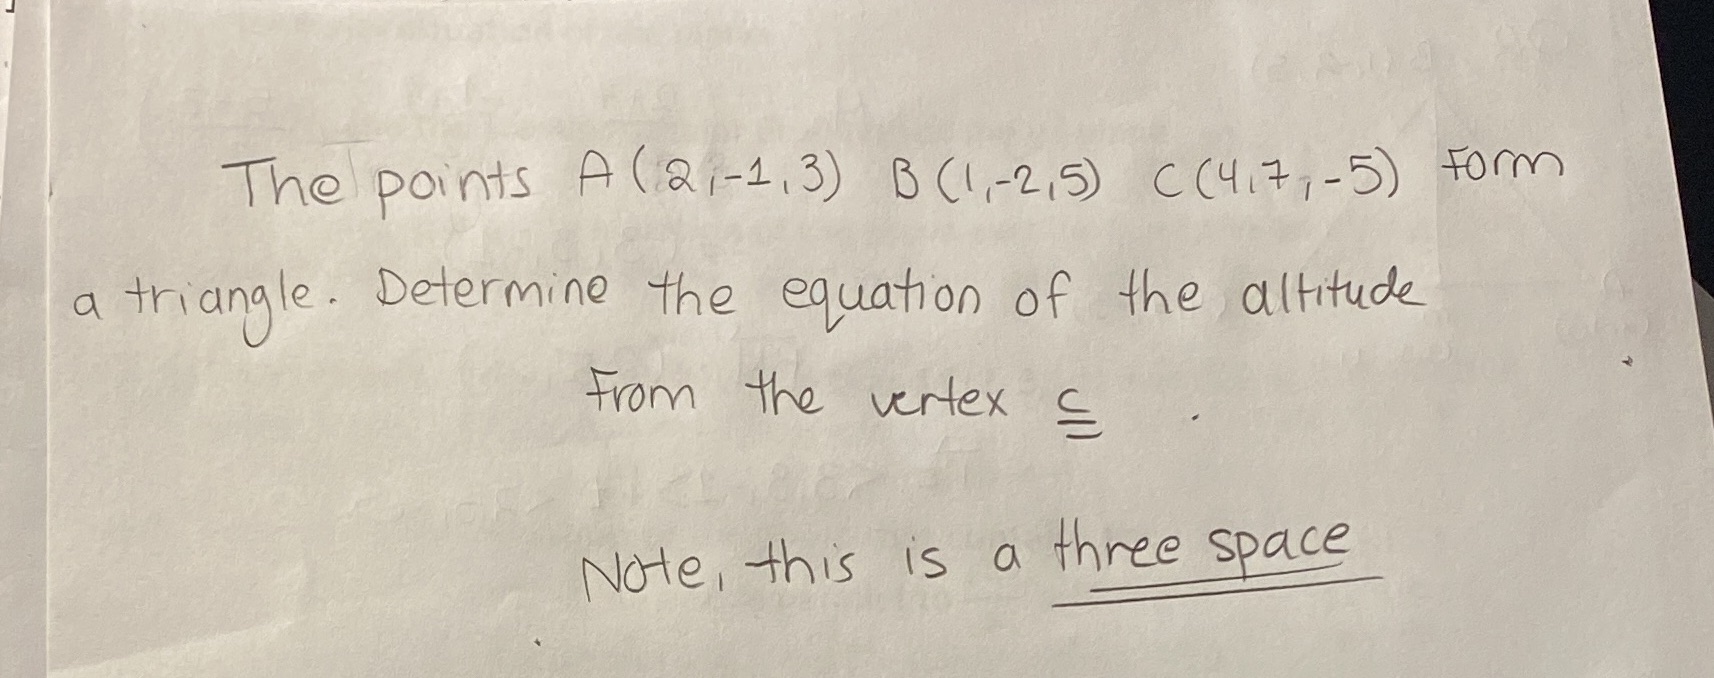 The points A(2,-1,3) B(1,-2,5) C(4,7,-5) form
a triangle. Determine the equation of the altitude
from the vertex C.
Note, this is a three space